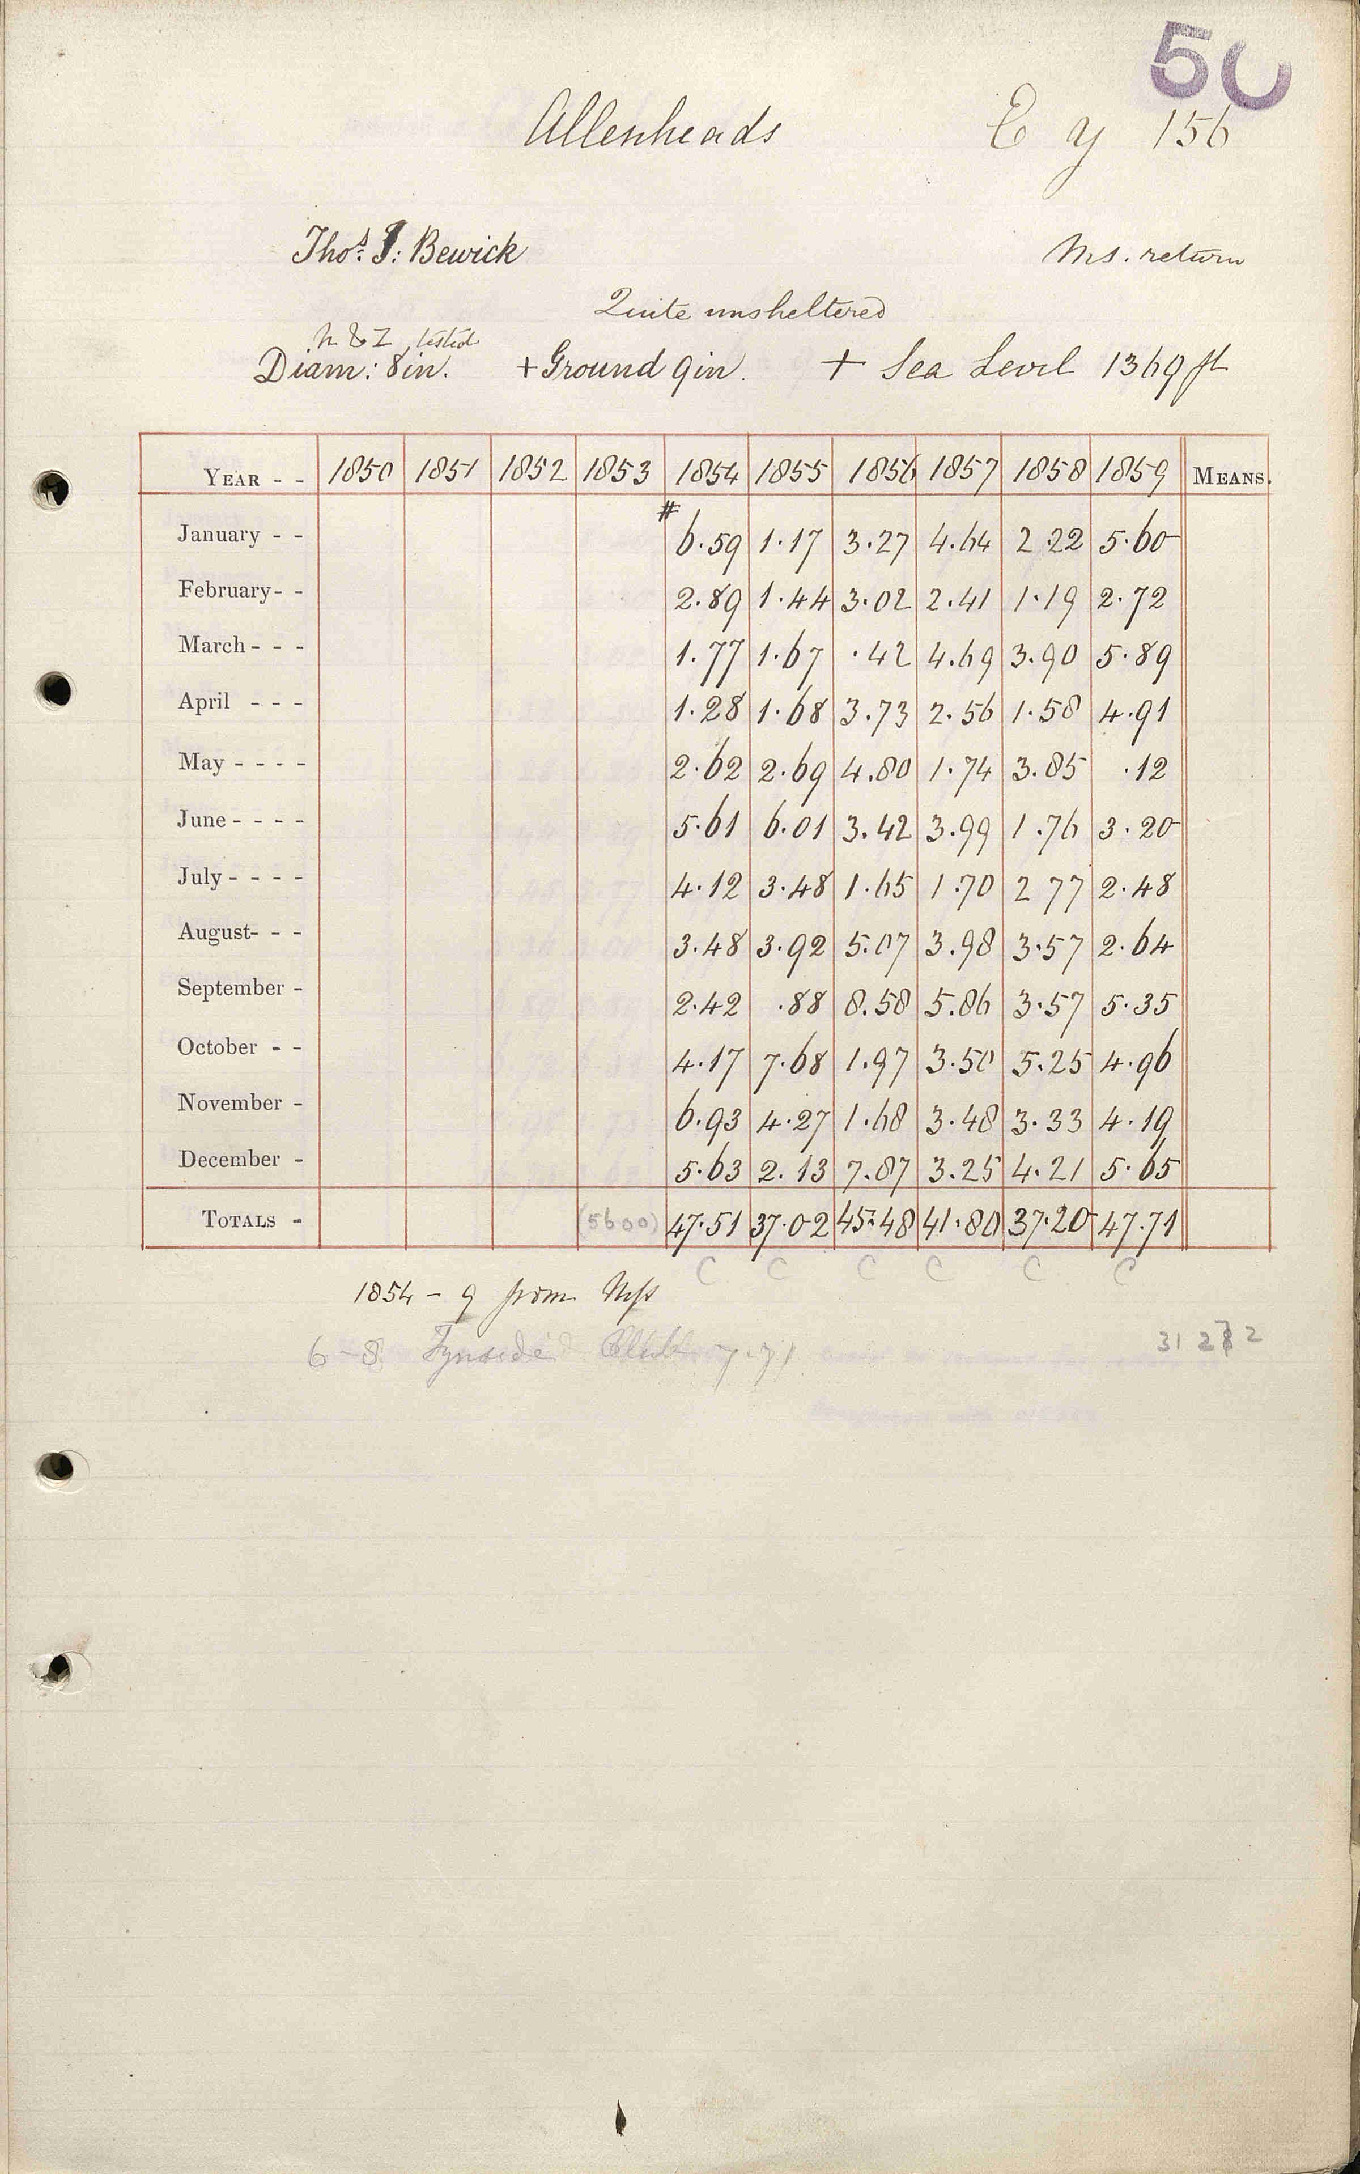 50
Allenheads E y 156
Thos. J: Bewick Ms. return
Quite unsheltered
N & Z tested
Diam: 8in. + Ground 9in. + Sea Level 1369 ft
YEAR - - 1850 1851 1852 1853 1854 1855 1856 1857 1858 1859 MEANS.
#
January - - 6.59 1.17 3.27 4.64 2.22 5.60
February - - 2.89 1.44 3.02 2.41 1.19 2.72
March - - - 1.77 1.67 .42 4.69 3.90 5.89
April - - - 1.28 1.68 3.73 2.56 1.58 4.91
May - - - - 2.62 2.69 4.80 1.74 3.85 .12
June - - - - 5.61 6.01 3.42 3.99 1.76 3.20
July - - - - 4.12 3.48 1.65 1.70 2 77 2.48
August - - - 3.48 3.92 5.07 3.98 3.57 2.64
September - 2.42 .88 8.58 5.86 3.57 5.35
October - - 4.17 7.68 1.97 3.50 5.25 4.96
November - 6.93 4.27 1.68 3.48 3.33 4.19
December - 5.63 2.13 7.87 3.25 4.21 5.65
TOTALS - (5600) 47.51 37.02 45.48 41.80 37.20 47.71
C C C C C C
1854 - 9 from Mss
6-8 Tyneside Club 7.71